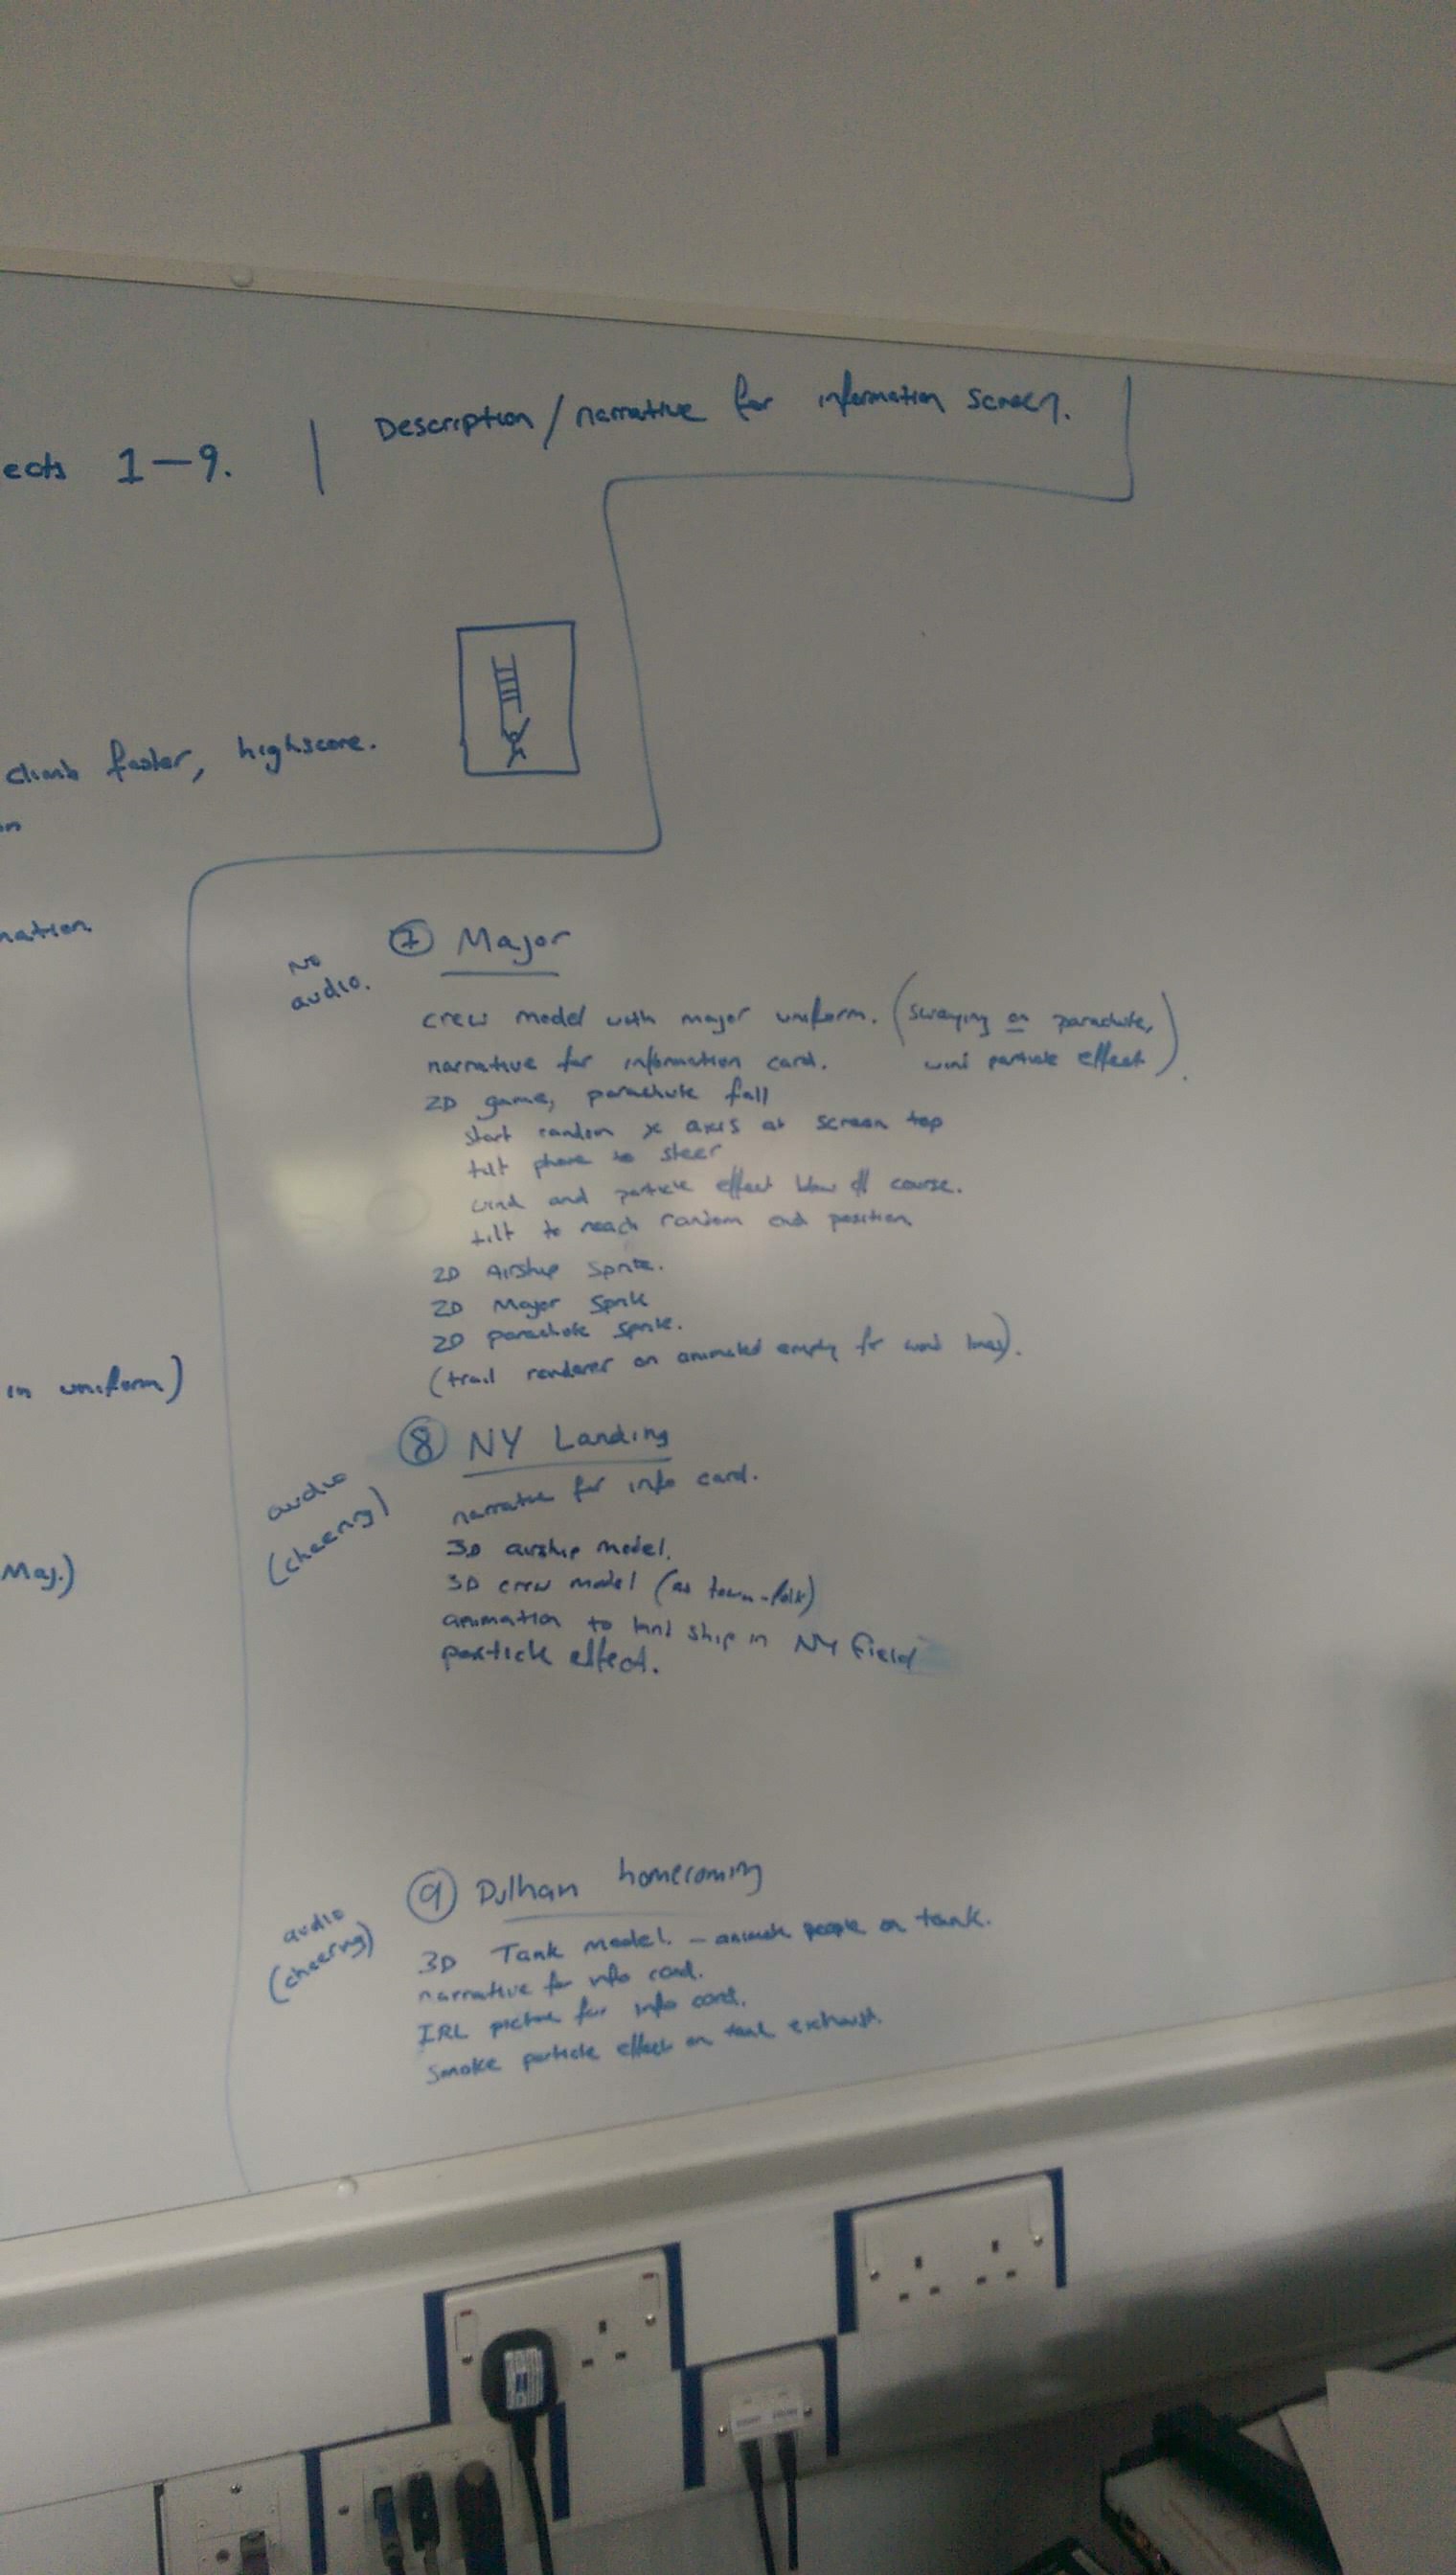 ects 1-9. | Description/narrative for information screen.
climb faster, highscore.
in uniform)
Maj.)
⑦ Major
No
audio.
crew model with major uniform. (swaying on parachute,
narrative for information card. wind particle effect).
2D game, parachute fall
start random x axis at screen top
tilt phone to steer
wind and particle effect blow off course.
tilt to reach random end position.
2D Airship Sprite.
2D Major Sprite
2D parachute sprite.
(trail renderer on animated empty for wind lines).
⑧ NY Landing
audio
(cheering)
narrative for info card.
3D airship model.
3D crew model (as town-folk)
animation to land ship in NY field
particle effect.
⑨ Pulham homecoming
audio
(cheering)
3D Tank model. - animate people on tank.
narrative for info card.
IRL picture for info card.
Smoke particle effect on tank exhaust.